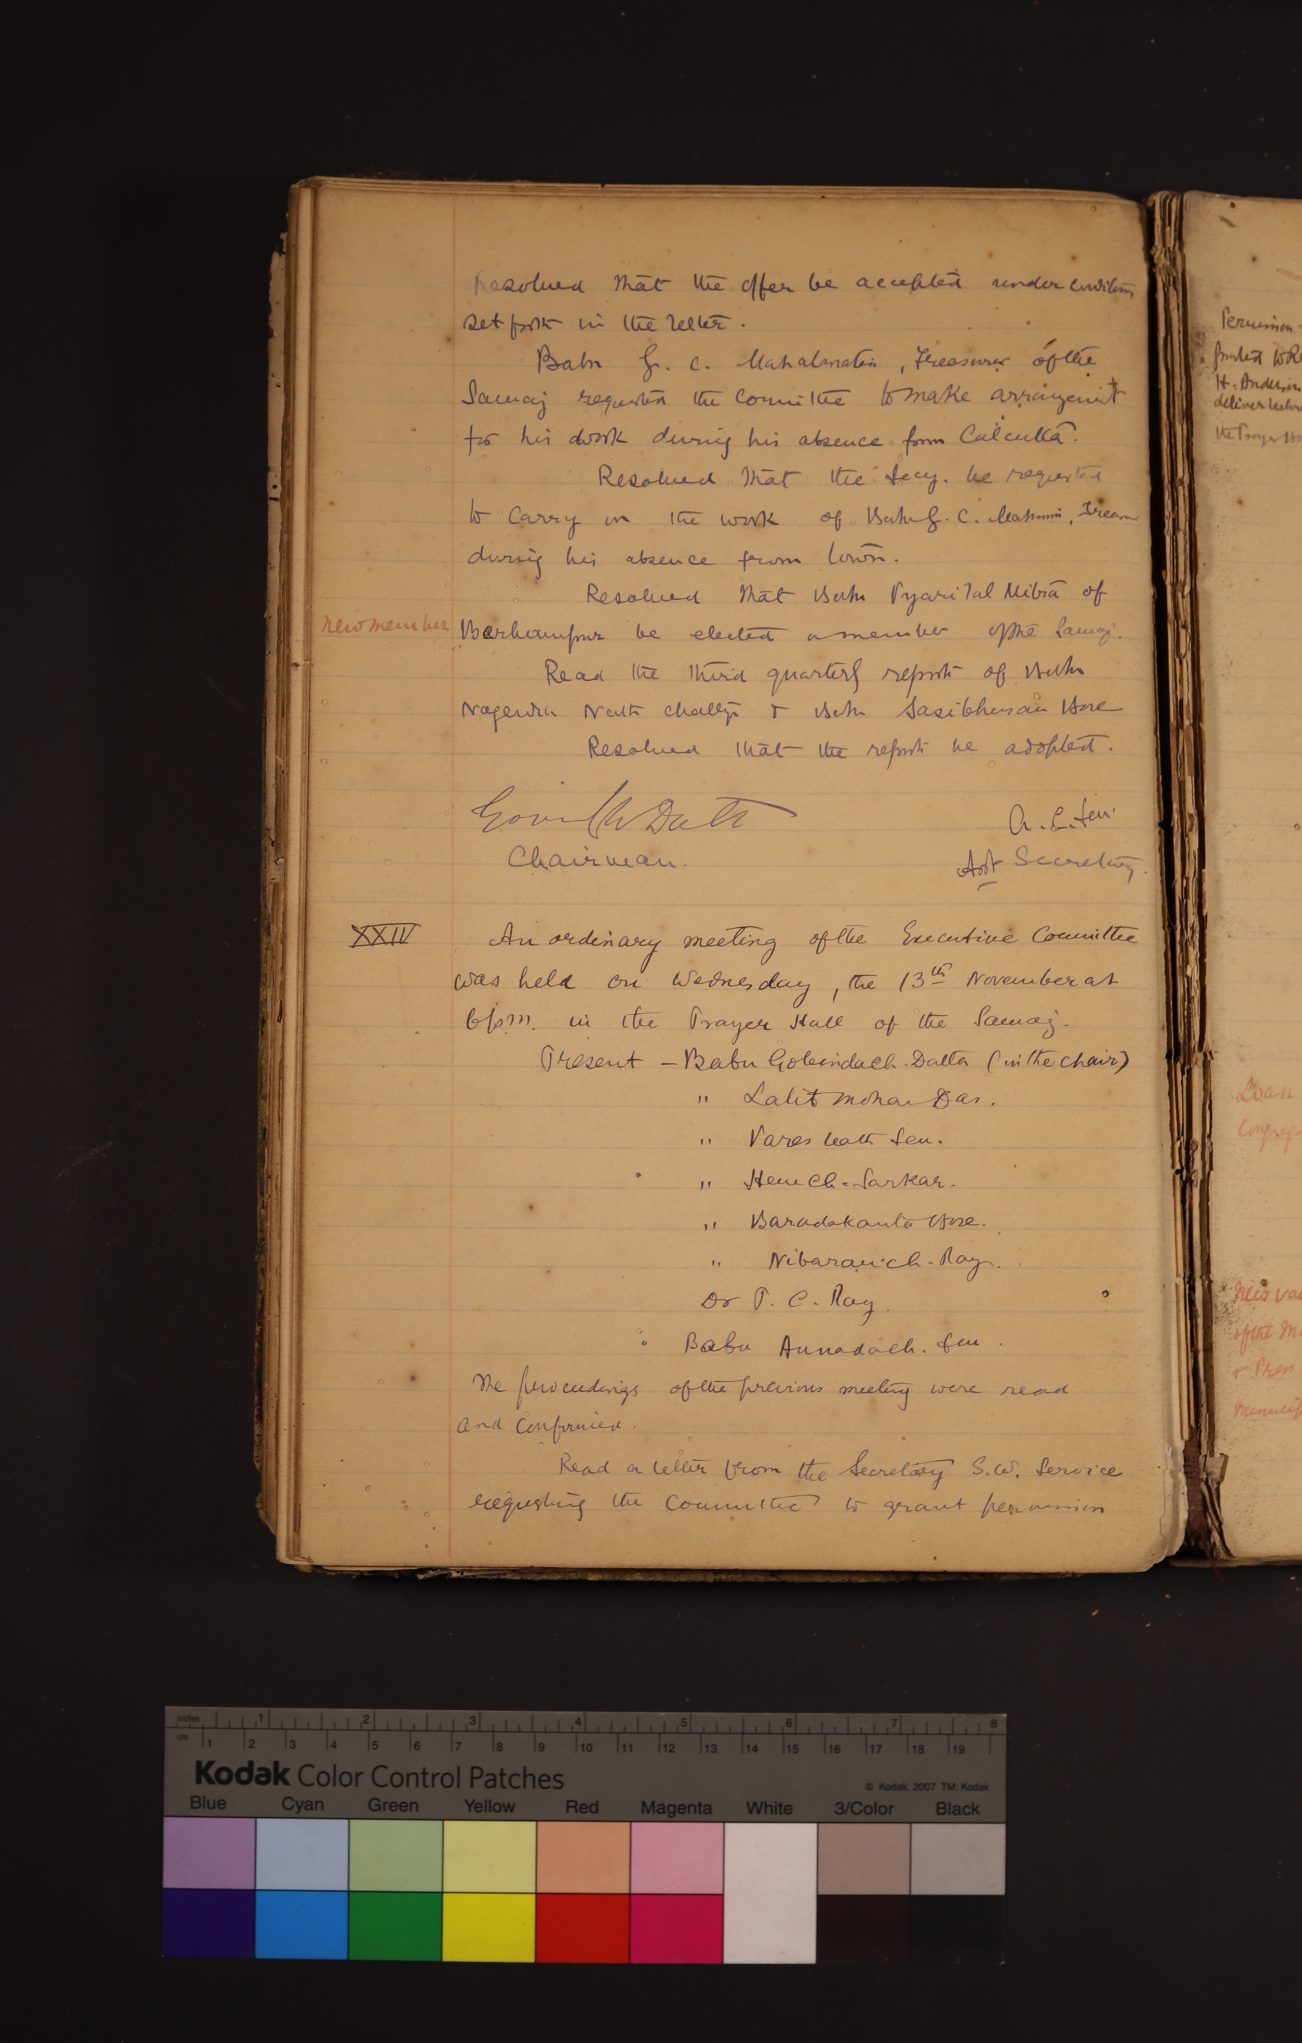 Resolved that the offer be accepted under conditions
set forth in the letter.
Babu G. C. Mahalanabis, Treasurer of the
Samaj requested the Committee to make arrangement
for his work during his absence from Calcutta.
Resolved that the Secy. be requested
to carry on the work of Babu G. C.
during his absence from town.
Resolved that Babu Pyarilal Mitra of
new member
Berhampur be elected a member of the Samaj.
Read the third quarterly report of Babu
Nagendra Nath Chatterji & Babu Sasibhusan Bose
Resolved that the report be adopted.
Datta
A. C. Sen
Chairman.
Asst Secretary.
XXIV
An ordinary meeting of the Executive Committee
was held on Wednesday, the 13th November at
6 p.m. in the Prayer Hall of the Samaj.
Present — Babu Gobindach. Datta (in the chair)
" Lalit Mohan Das.
" Pares Nath Sen.
" Hem Ch. Sarkar.
" Baradakanta Bose.
" Nibaran Ch. Ray.
Dr P. C. Ray.
Babu Annadach. Sen.
The proceedings of the previous meeting were read
and confirmed.
Read a letter from the Secretary S. W. Service
requesting the Committee to grant permission
Permission
H. Anderson
deliver
the Prayer
Loan
Congrega
New
of the
& Press
inches 1 2 3 4 5 6 7 8
cm 1 2 3 4 5 6 7 8 9 10 11 12 13 14 15 16 17 18 19
Kodak Color Control Patches
© Kodak, 2007 TM: Kodak
Blue Cyan Green Yellow Red Magenta White 3/Color Black